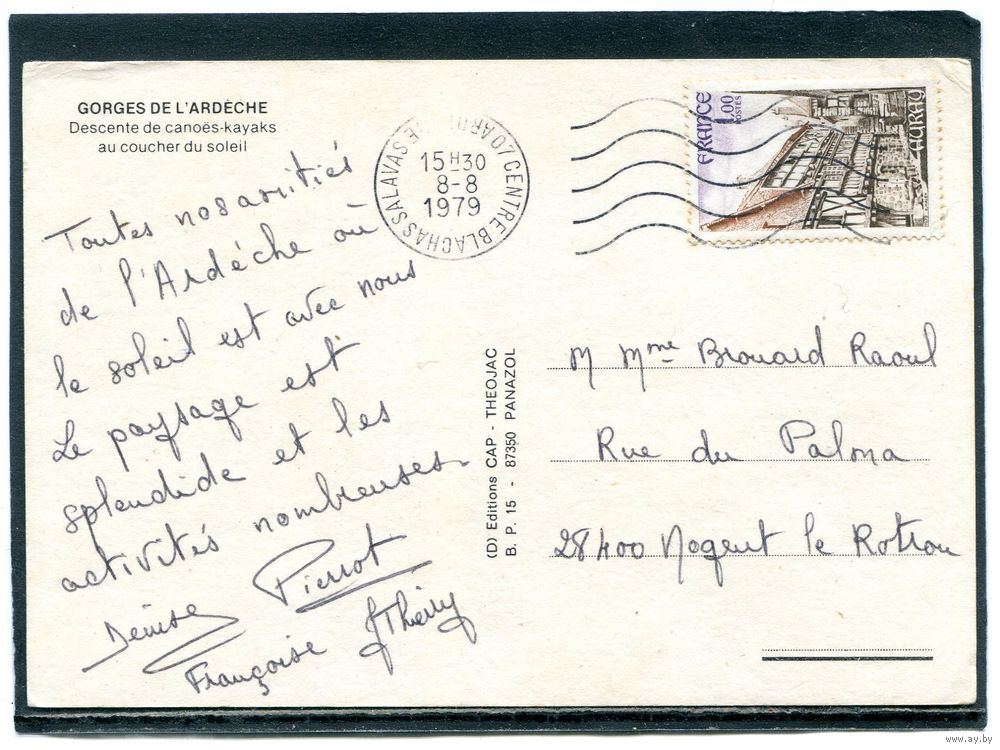 GORGES DE L'ARDÈCHE
Descente de canoës-kayaks
au coucher du soleil
Toutes nos amitiés
de l'Ardèche où
le soleil est avec nous
Le paysage est
splendide et les
activités nombreuses
Denise Pierrot
Françoise Thierry
(D) Editions CAP - THEOJAC
B. P. 15 - 87350 PANAZOL
07 CENTRE BLACHAS SALAVAS
15 H 30
8-8
1979
FRANCE
1,00
POSTES
AURAY
M Mme Brouard Raoul
Rue du Palma
28400 Nogent le Rotrou
www.ay.by